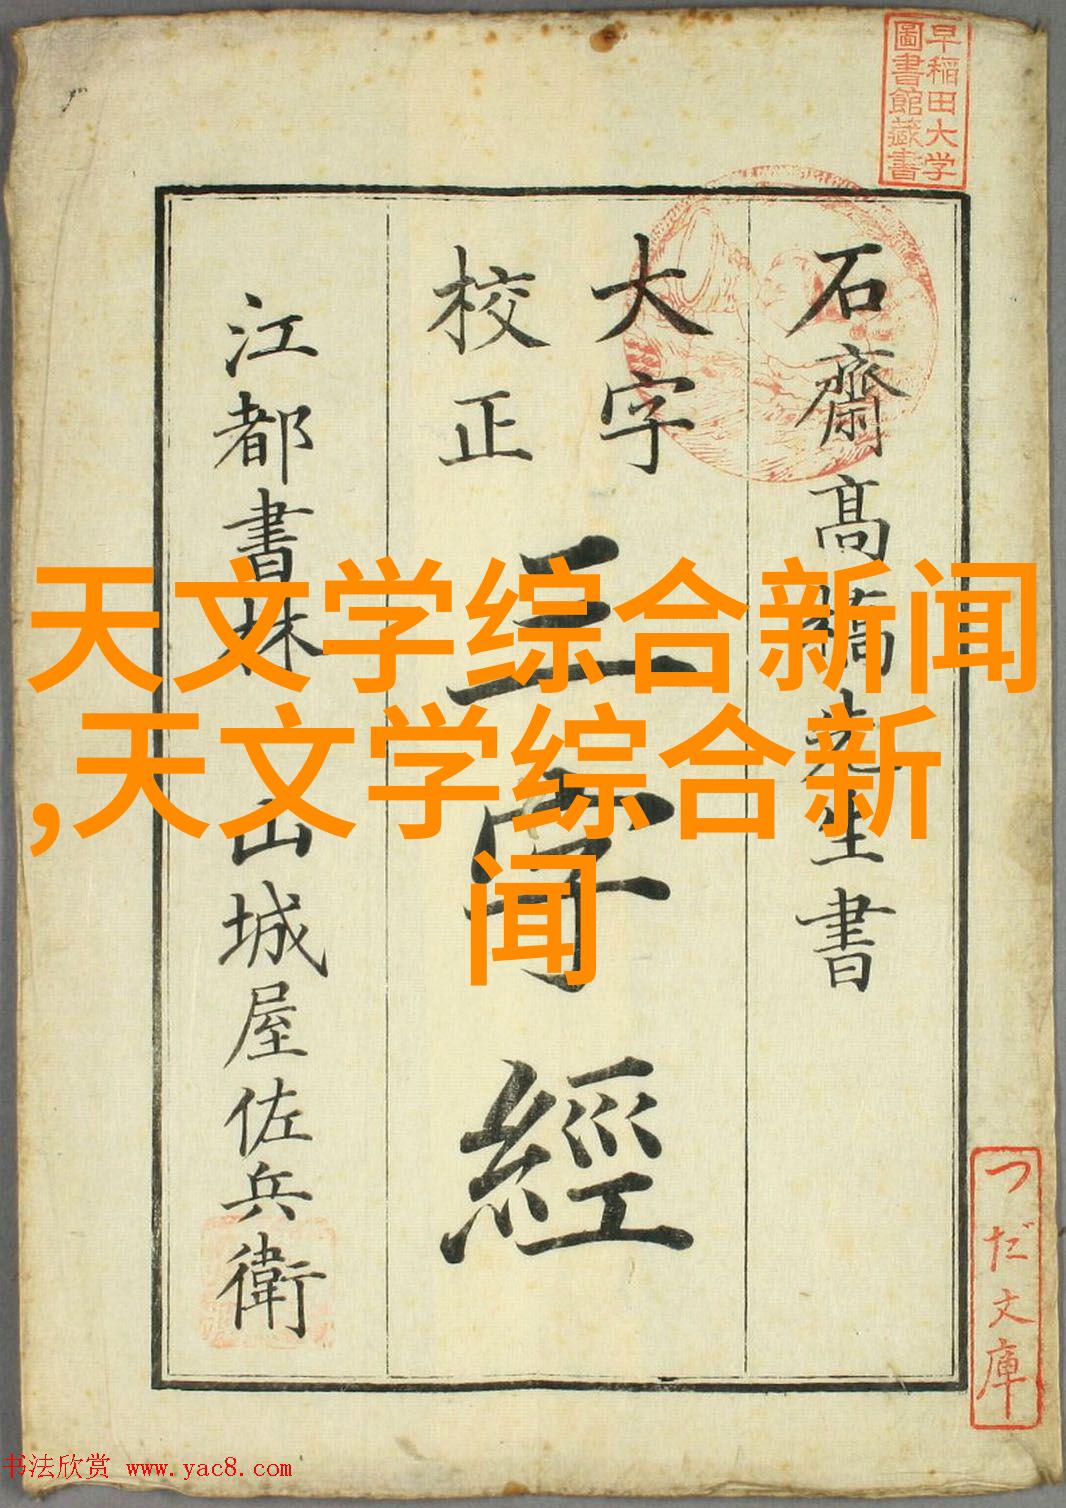 早稲田大学
圖書館藏書
石齋髙橋先生書
大字
校正
三字經
江都書林 山城屋佐兵衛
つだ文庫
天文学综合新闻
,天文学综合新
闻
书法欣赏 www.yac8.com